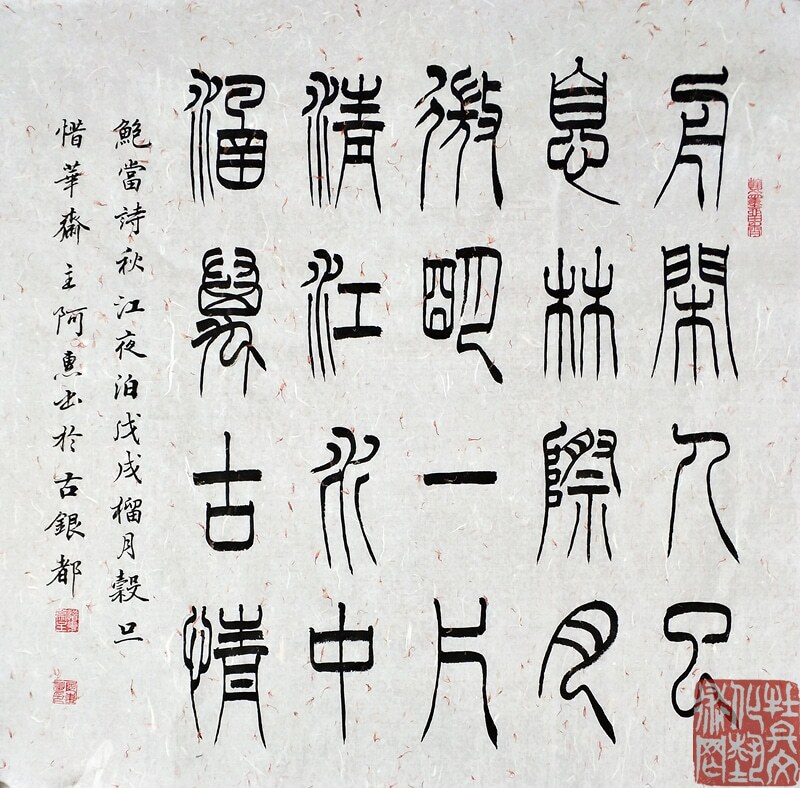 舟閑人已
息林際月
微明一片
清江水中
涵萬古情
鮑當詩秋江夜泊戊戌榴月穀旦
惜華齋主阿惠書於古銀都